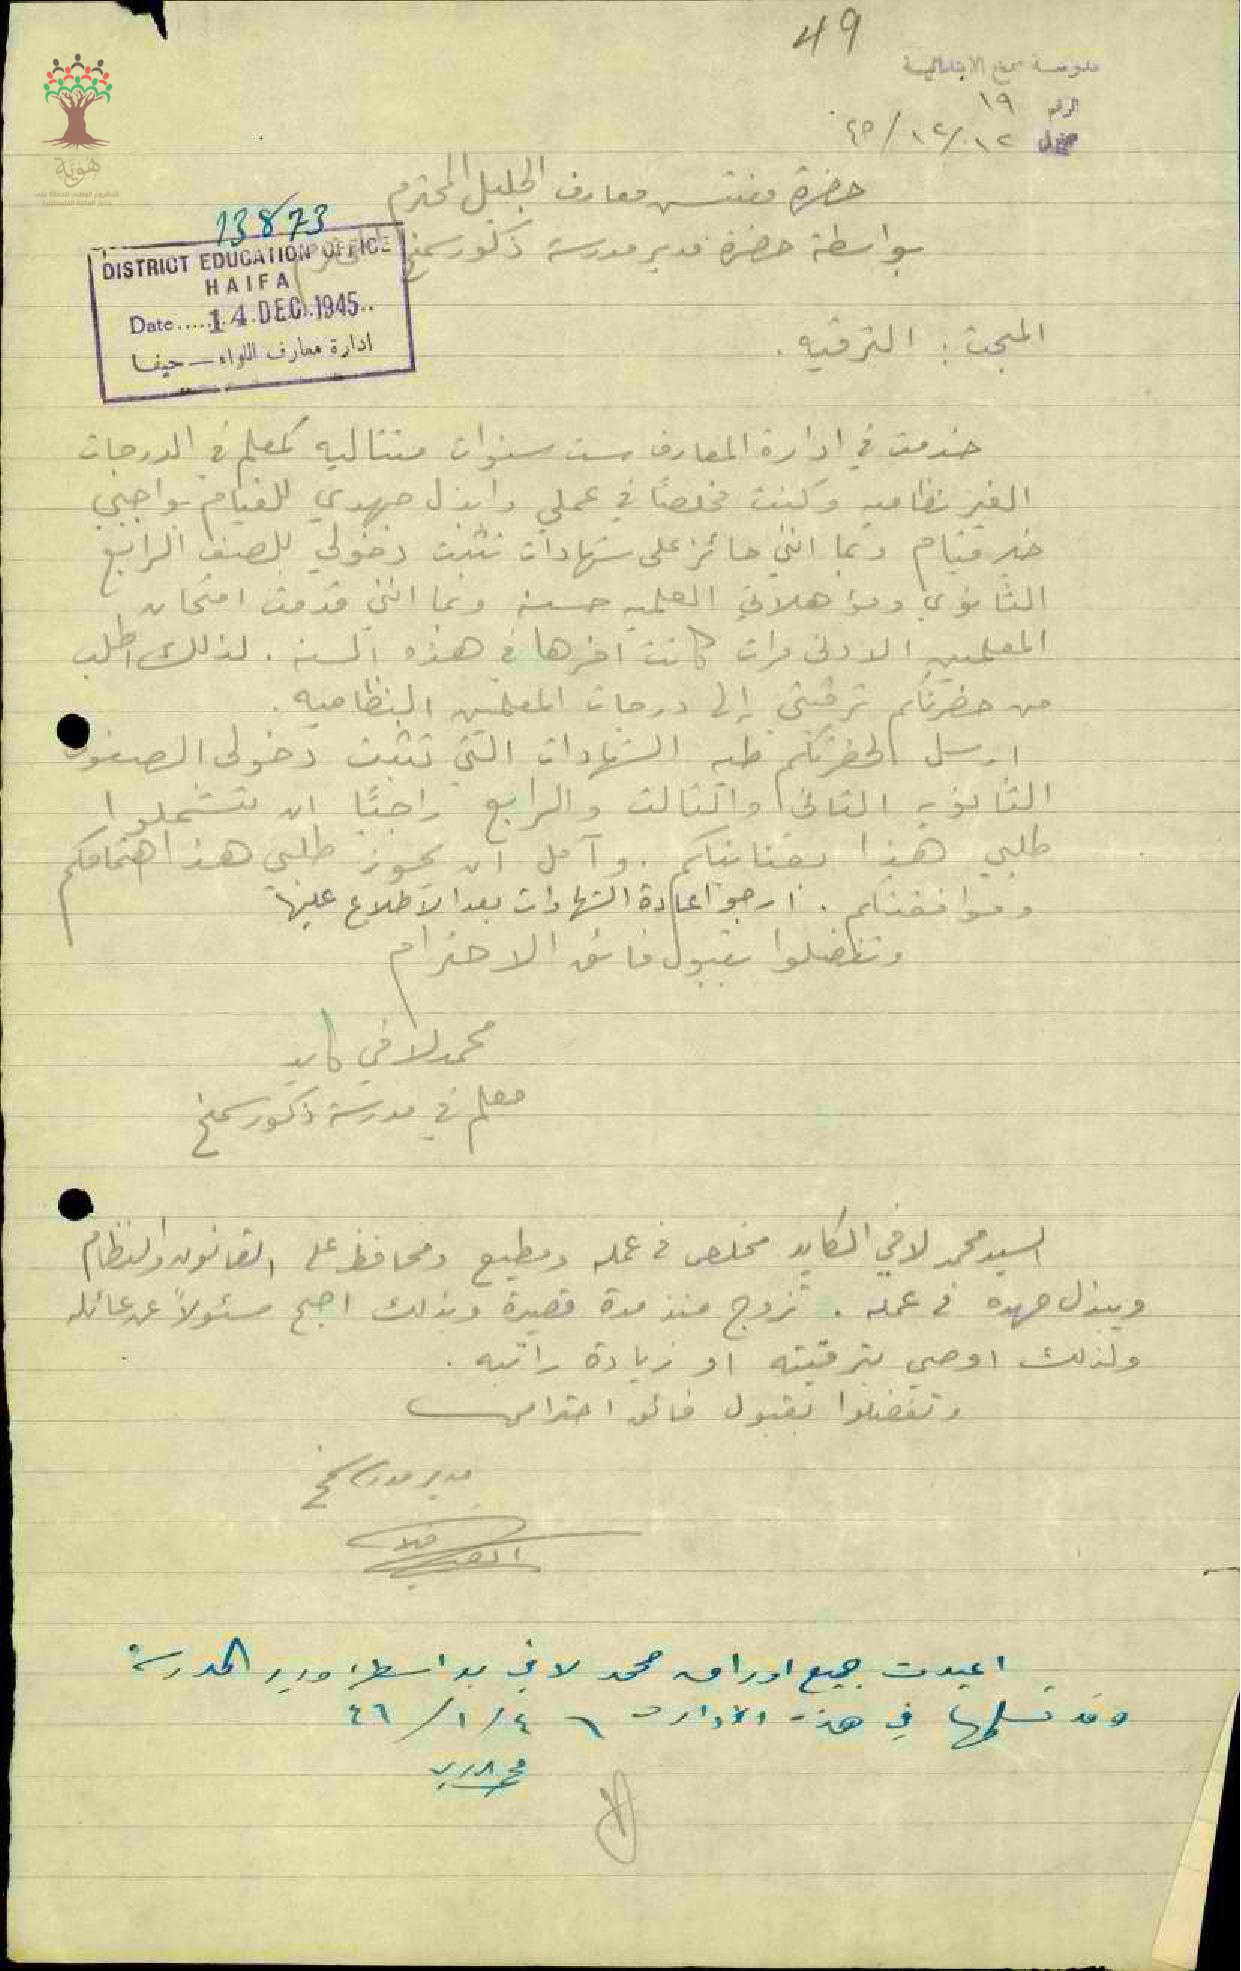 49
مدرسة سمخ الابتدائية
الرقم ١٩
١٢/١٢/٤٥
حضرة مفتش معارف الجليل المحترم
13873
بواسطة حضرة مدير مدرسة ذكور سمخ
DISTRICT EDUCATION OFFICE
HAIFA
Date...... 14 DEC 1945..
ادارة معارف اللواء — حيفا
المبحث : الترقيه .
خدمت في ادارة المعارف ست سنوات متتاليه كمعلم في الدرجات
الغير نظاميه وكنت مخلصًا في عملي وابذل جهدي للقيام بواجبي
خير قيام وبما انني حائز على شهادات تثبت دخولي للصف الرابع
الثانوي ومؤهلاتي العلميه حسنه وبما انني قدمت امتحان
المعلمين الادنى مرات كانت اخرها في هذه السنه . لذلك اطلب
من حضرتكم ترقيتي إلى درجات المعلمين النظاميه .
ارسل لحضرتكم طيه الشهادات التي تثبت دخولي الصفوف
الثانويه الثاني والثالث والرابع راجيًا ان تشملوا
طلبي هذا بعنايتكم . وآمل ان يحوز طلبي هذا اهتمامكم
وموافقتكم . ارجو اعادة الشهادات بعد الاطلاع عليها
وتفضلوا بقبول فائق الاحترام
محمد لافي كايد
معلم في مدرسة ذكور سمخ
السيد محمد لافي الكايد مخلص في عمله ومطيع ومحافظ على القانون والنظام
ويبذل جهده في عمله . تزوج منذ مدة قصيرة وبذلك اصبح مسئولاً عن عائله
ولذلك اوصي بترقيته او زيادة راتبه .
وتفضلوا بقبول فائق احترامي
مدير مدرسة سمخ
اعيدت جميع اوراق محمد لافي بواسطة مدير المدرسة
وقد تسلمها في هذه الادارة ٤/١/٤٦